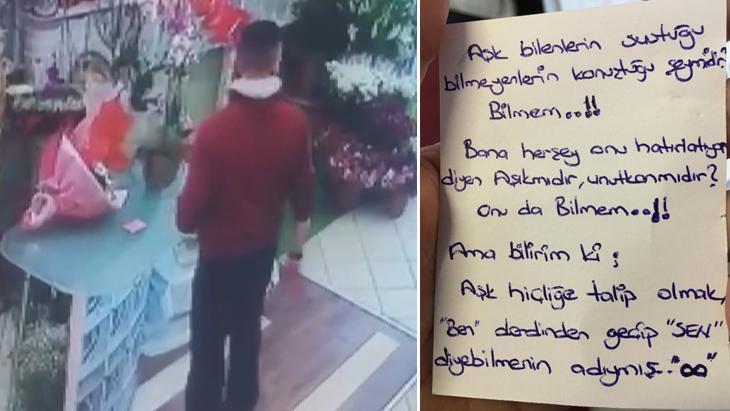 Aşk bilenlerin sustuğu
bilmeyenlerin konuştuğu şeymidir?
Bilmem..!!
Bana herşey onu hatırlatıyor
diyen Aşıkmıdır, unutkanmıdır?
Onu da Bilmem..!!
Ama bilirim ki;
Aşk hiçliğe talip olmak,
"Ben" derdinden geçip "SEN"
diyebilmenin adıymış. "∞"